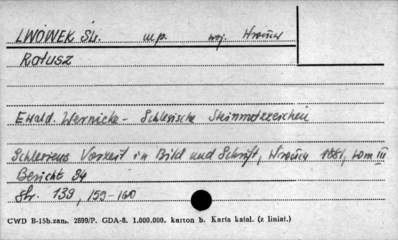 LWÓWEK Śl. m.p. woj. Wrocław
Ratusz
Ewald. Wernicke - Schlesische Steinmetzzeichen
Schlesiens Vorzeit in Bild und Schrift, Wrocław 1881, tom III
Bericht 34
Str. 139, 159-160
CWD B-15b.zam. 2899/P. GDA-8. 1.000.000. karton b. Karta katal. (z liniat.)